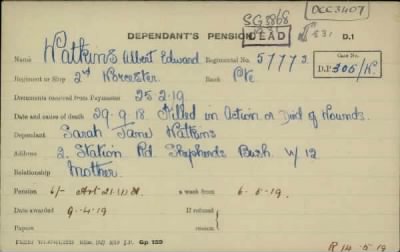 SG3868
DCC3407
DEPENDANT'S PENSION DEAD 831. D.1
Name Watkins Albert Edward Regimental No. 57773
Case No.
Regiment or Ship 2nd Worcester. Rank Pte D.P. 306/K.
Documents received from Paymaster 25-2-19
Date and cause of death 29-9-18 Killed in Action or Died of Wounds.
Dependant Sarah Jane Watkins
Address 2. Station Rd. Shepherds Bush W12
Relationship Mother.
Pension 6/- Art 21. a week from 6-5-19.
Date awarded 9-4-19. If refused
Papers reason
Gp. 159
R 14-5-19